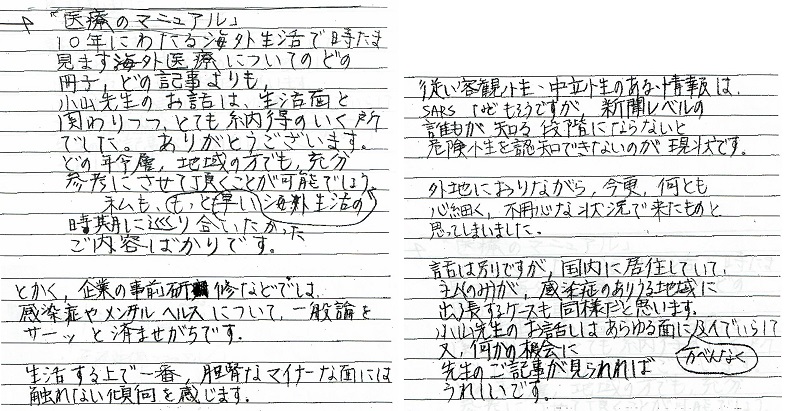 「医療のマニュアル」
10年にわたる海外生活で時たま
見ます海外医療についてのどの
冊子、どの記事よりも、
小山先生のお話は、生活面と
関わりつつ、とても納得のいく所
でした。ありがとうございます。
どの年令層、地域の方でも、充分
参考にさせて頂くことが可能でしょう
私も、もっと早い海外生活の
時期に巡り合いたかった
ご内容ばかりです。
とかく、企業の事前研修などでは、
感染症やメンタルヘルスについて、一般論を
サーッと済ませがちです。
生活する上で一番、肝腎なマイナーな面には
触れない傾向を感じます。
従い客観性・中立性のある情報は、
SARS などもそうですが 新聞レベルの
誰もが知る段階にならないと
危険性を認知できないのが現状です。
外地におりながら、今更、何とも
心細く、不用心な状況で来たものと
思ってしまいました。
話は別ですが、国内に居住していて、
主人のみが、感染症のありうる地域に
出張するケースも同様だと思います。
小山先生のお話しはあらゆる面に及んでいらして
又、何かの機会に
万べんなく
先生のご記事が見られれば
うれしいです。